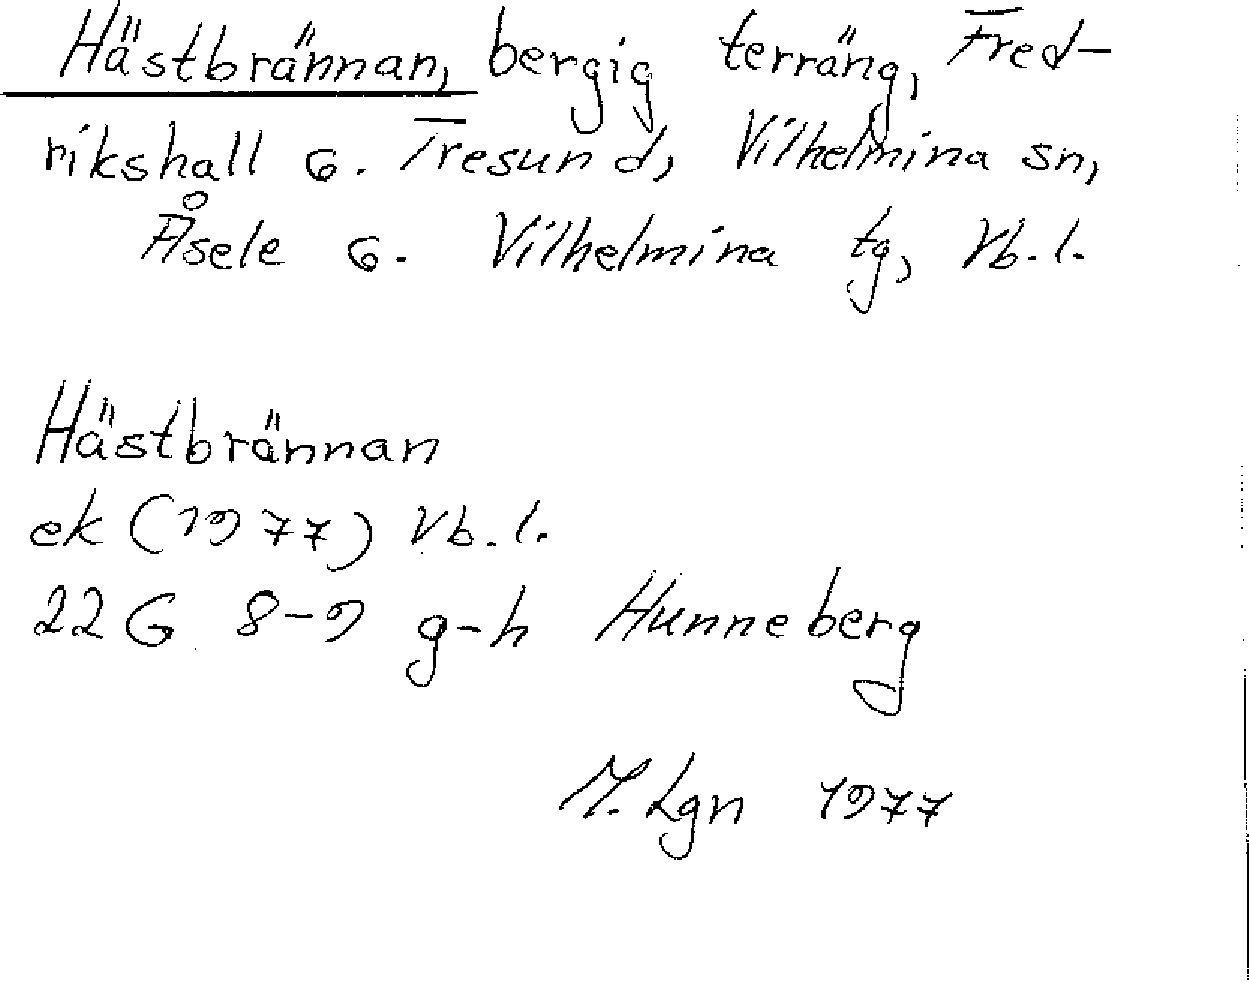 Hästbrännan, bergig terräng, Fred-
rikshall o. Tresund, Vilhelmina sn,
Åsele o. Vilhelmina tg, Vb.l.
Hästbrännan
ek (1977) Vb.l.
22G 8-9 g-h Hunneberg
M. Lgn 1977